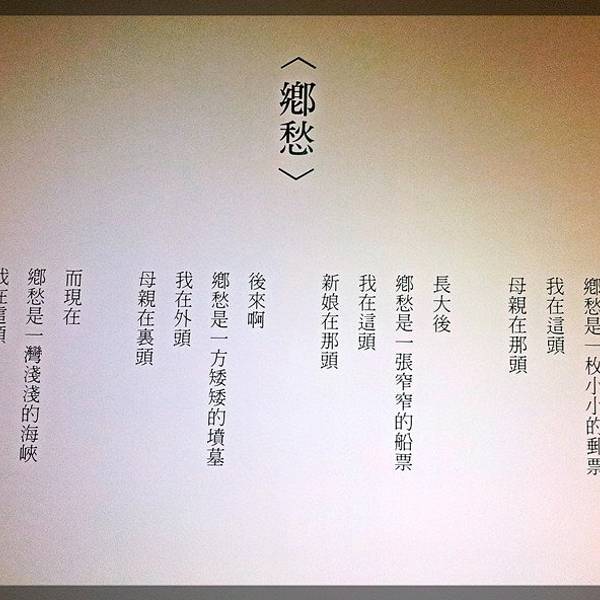 〈鄉愁〉
鄉愁是一枚小小的郵票
我在這頭
母親在那頭
長大後
鄉愁是一張窄窄的船票
我在這頭
新娘在那頭
後來啊
鄉愁是一方矮矮的墳墓
我在外頭
母親在裏頭
而現在
鄉愁是一灣淺淺的海峽
我在這頭